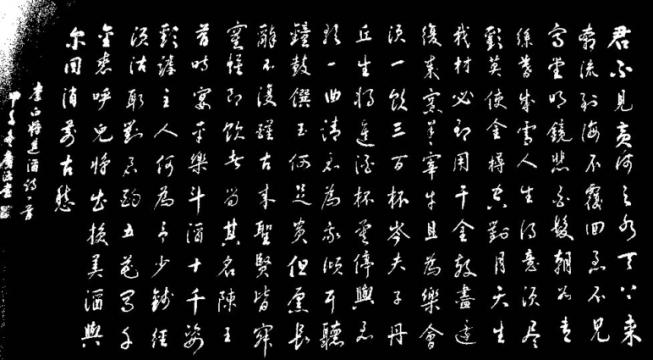 君不見黃河之水天上来
奔流到海不復回君不見
高堂明鏡悲白髮朝如青
絲暮成雪人生得意須盡
歡莫使金樽空對月天生
我材必有用千金散盡還
復来烹羊宰牛且為樂會
須一飲三百杯岑夫子丹
丘生將進酒杯莫停與君
歌一曲請君為我傾耳聽
鐘鼓饌玉何足貴但願長
醉不復醒古来聖賢皆寂
寞惟有飲者留其名陳王
昔時宴平樂斗酒十千恣
歡謔主人何為言少錢徑
須沽取對君酌五花馬千
金裘呼兒將出換美酒與
尔同消萬古愁
李白將進酒詩一首